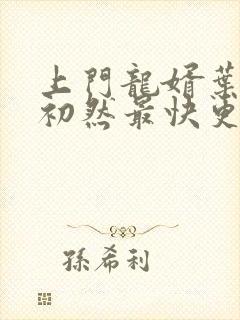 上門龍婿葉
初然最快更
孫希利